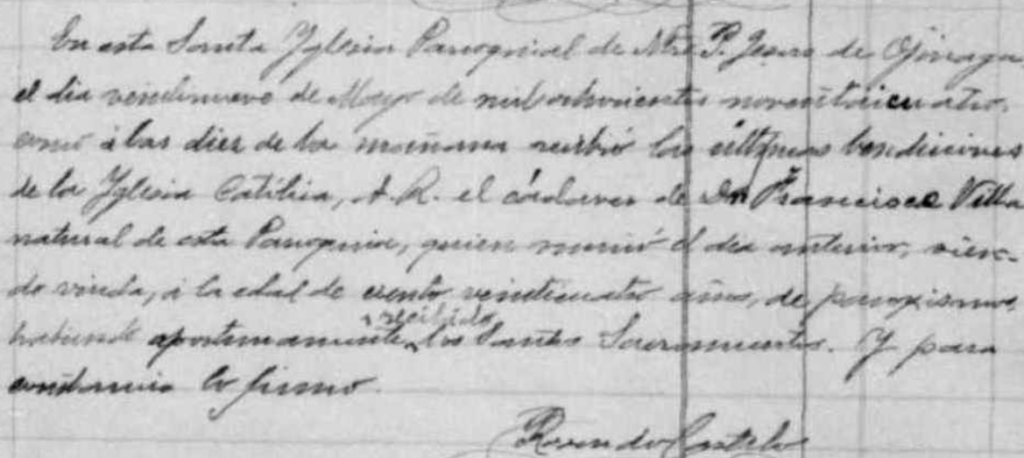 En esta Santa Yglesia Parroquial de Ntro. P. Jesus de Ojinaga
el dia veintinueve de Mayo de mil ochocientos noventaicuatro,
como á las diez de la mañana recibió las últimas bendiciones
de la Yglesia Católica, A. R. el cádaver de Dn Francisco Villa
natural de esta Parroquia, quien murió el dia anterior, sien-
do viuda, á la edad de ciento veinticuatro años, de paroxismo,
habiendo oportunamente recibido los Santos Sacramentos. Y para
constancia lo firmo.
Rosendo